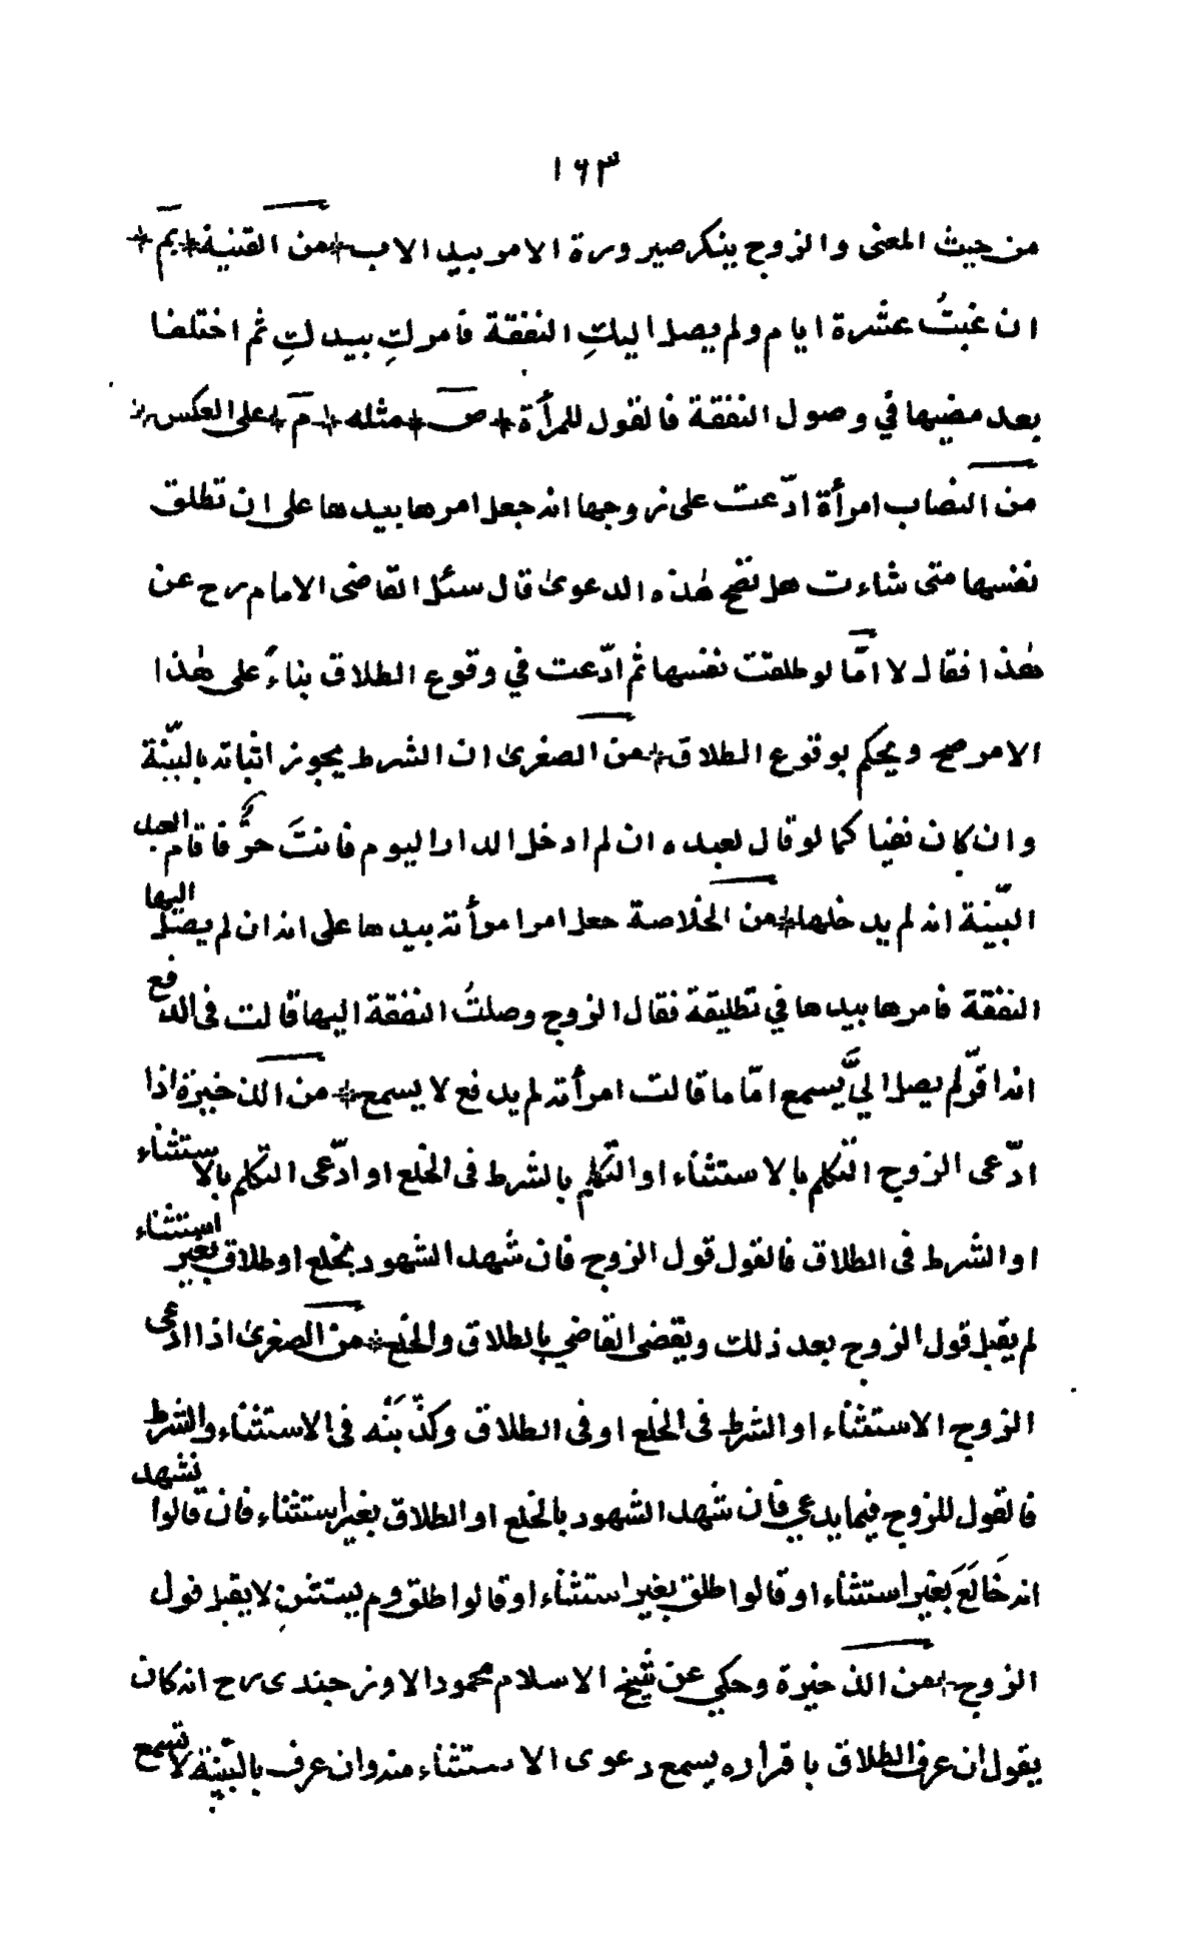 ١٦٣
من حيث المعنى والزوج ينكر صيرورة الامر بيد الاب * من القنية * بم *
ان غبتُ عشرة ايام ولم يصل اليكِ النفقة فامركِ بيدكِ ثم اختلفا
بعد مضيها في وصول النفقة فالقول للمرأة * ص * مثله * م * على العكس *
من النصاب امرأة ادّعت على زوجها انه جعل امرها بيدها على ان تطلق
نفسها متى شاءت هل تصح هذه الدعوى قال سئل القاضى الامام رح عن
هذا فقال لا امّا لو طلقت نفسها ثم ادّعت في وقوع الطلاق بناءً على هذا
الامر صح ويحكم بوقوع الطلاق * من الصغرى ان الشرط يجوز اثباته بالبيّنة
وان كان نفيا كما لو قال لعبده ان لم ادخل الدار اليوم فانتَ حرٌّ فاقام العبد
البيّنة انه لم يدخلها * من الخلاصة جعل امر امرأته بيدها على انه ان لم يصل اليها
النفقة فامرها بيدها في تطليقة فقال الزوج وصلتُ النفقة اليها قالت فى الدفع
انه اقرّ لم يصل اليَّ يسمع امّا ما قالت امرأته لم يدفع لا يسمع * من الذخيرة اذا
ادّعى الزوج التكلم بالاستثناء او التكلم بالشرط فى الخلع او ادّعى التكلم بالاستثناء
او الشرط فى الطلاق فالقول قول الزوج فان شهد الشهود بخلع او طلاق بغير استثناء
لم يقبل قول الزوج بعد ذلك ويقضى القاضي بالطلاق والخلع * من الصغرى اذا ادعى
الزوج الاستثناء او الشرط فى الخلع او فى الطلاق وكذّبَتْه فى الاستثناء والشرط
فالقول للزوج فيما يدعي فان شهد الشهود بالخلع او الطلاق بغير استثناء فان قالوا نشهد
انه خَالَعَ بغير استثناء او قالوا طلق بغير استثناء او قالوا طلق ولم يستثنِ لا يقبل قول
الزوج * من الذخيرة وحكي عن شيخ الاسلام محمود الاوزجندى رح انه كان
يقول ان عرف الطلاق باقراره يسمع دعوى الاستثناء منه وان عرف بالبيّنة لا تسمع